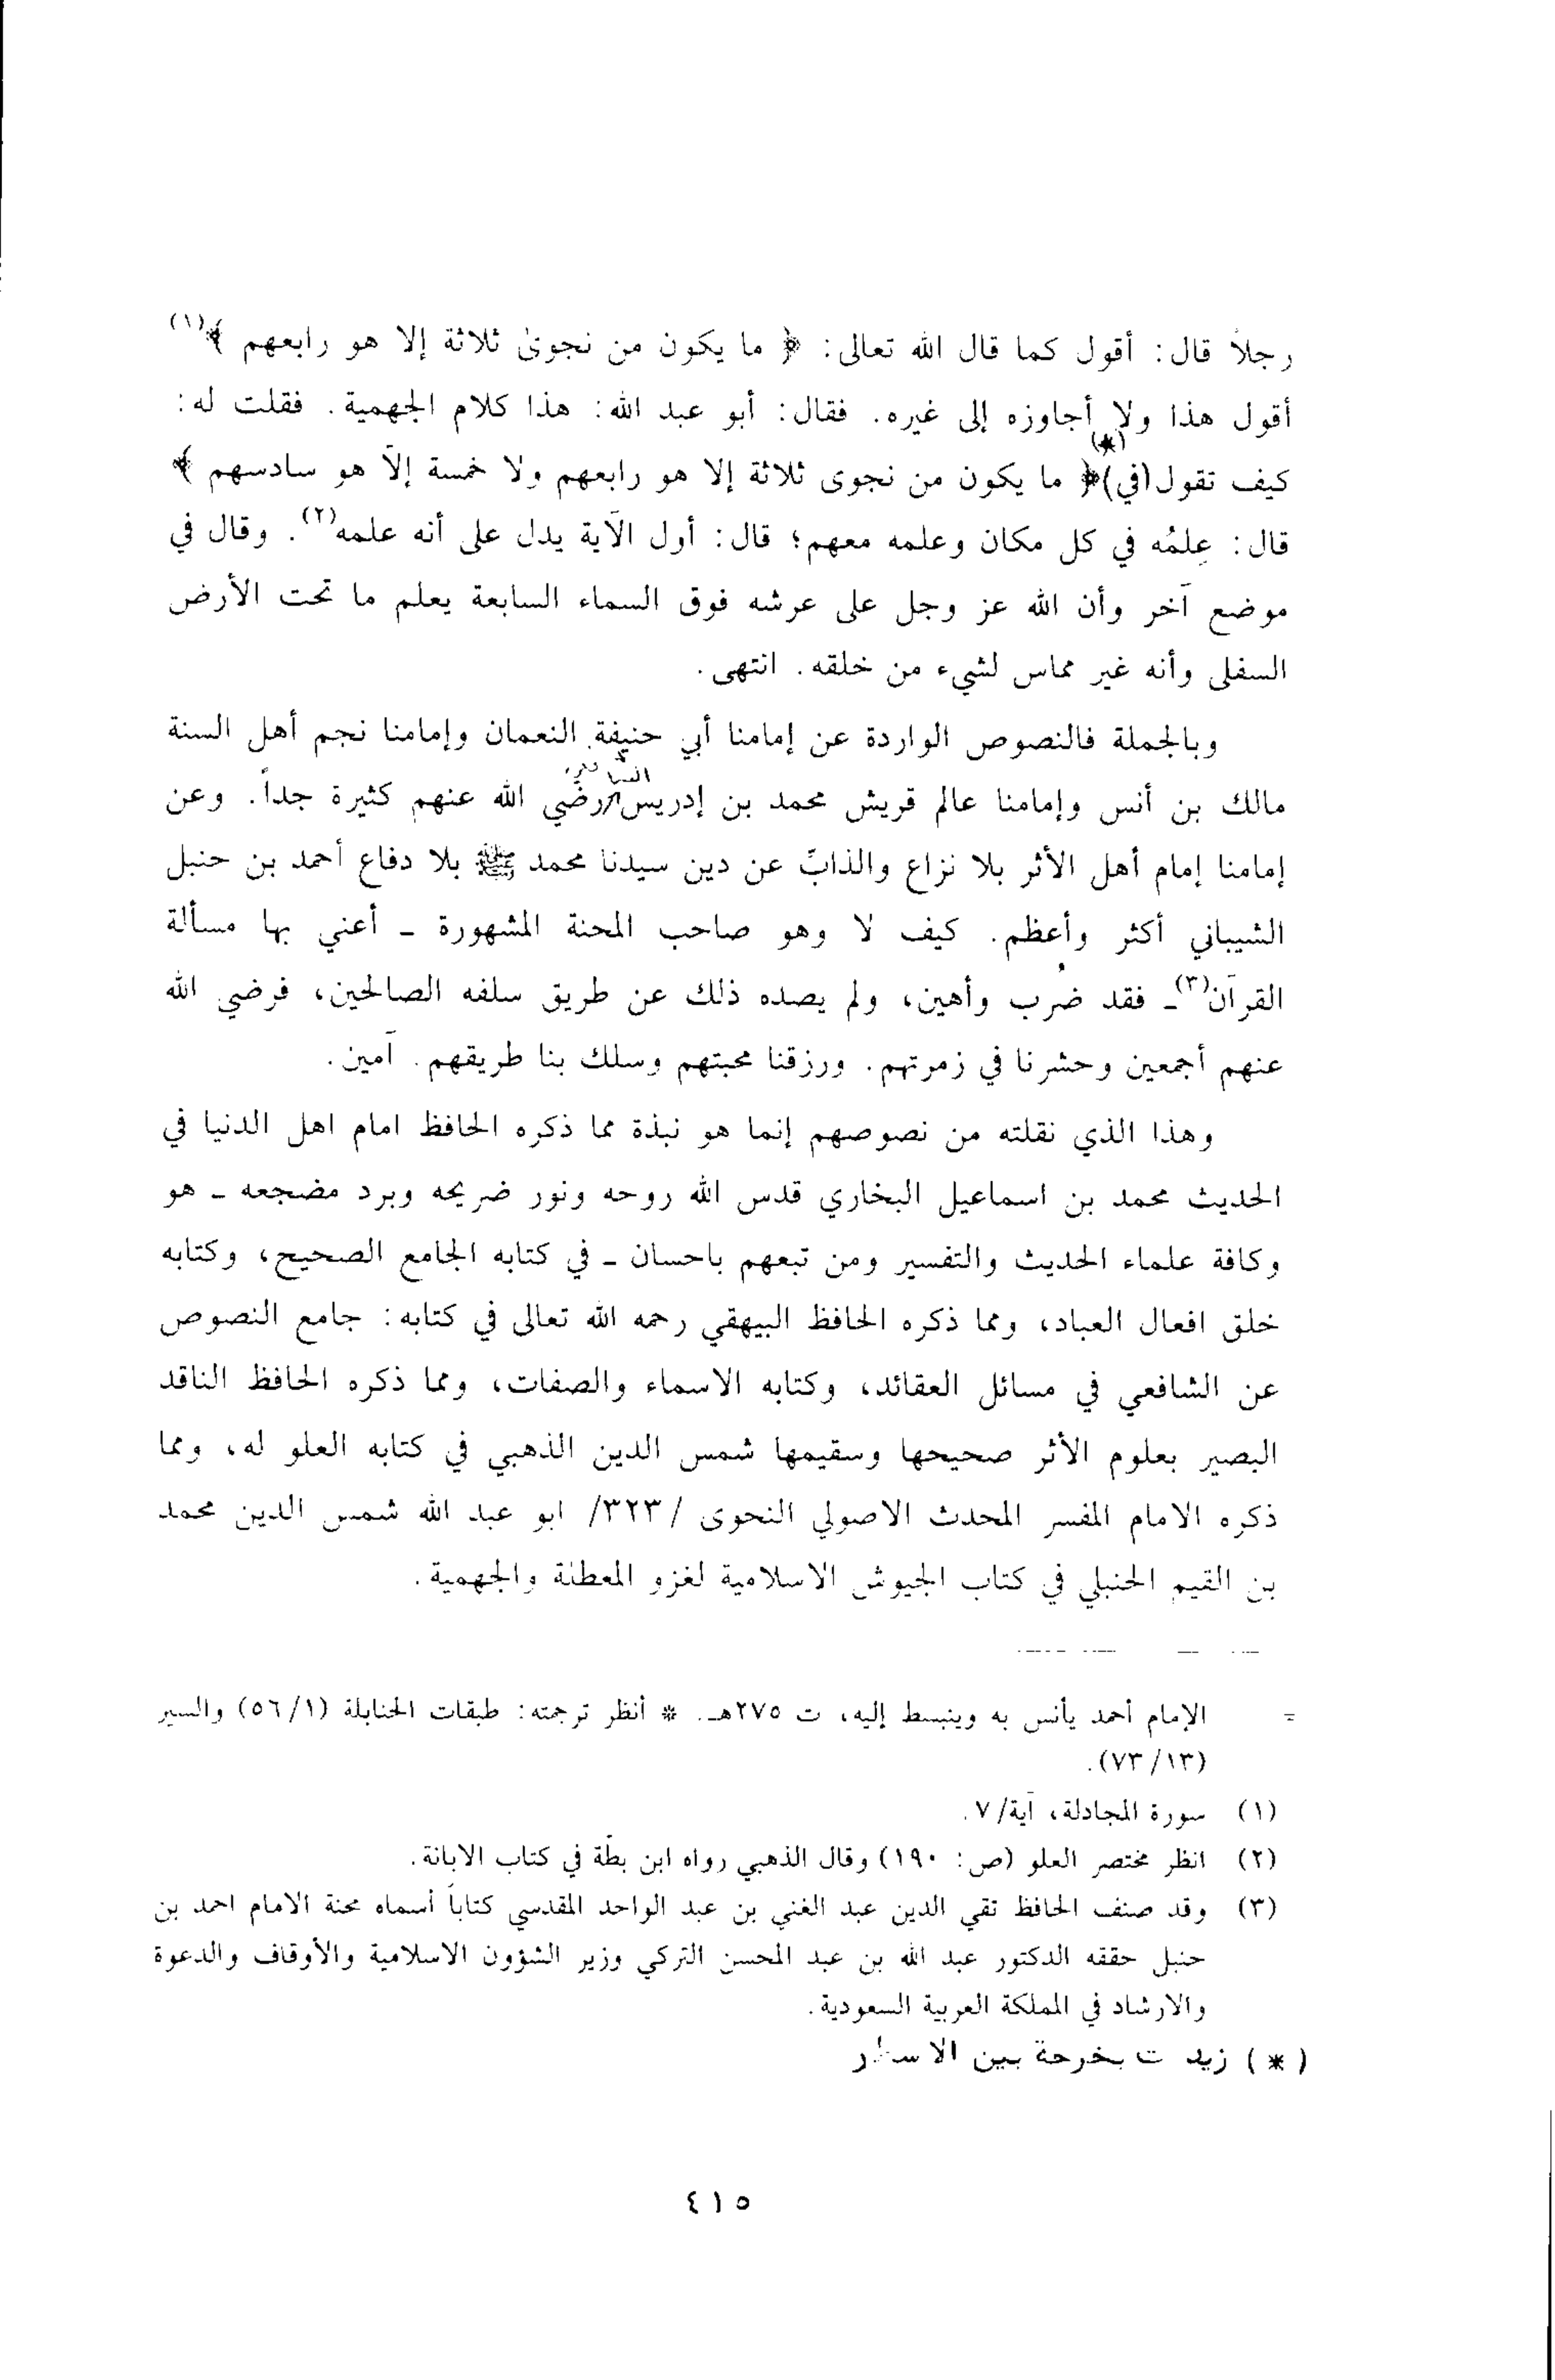 رجلاً قال: أقول كما قال الله تعالى: ﴿ ما يكون من نجوىٰ ثلاثة إلا هو رابعهم ﴾(١)
أقول هذا ولا أجاوزه إلى غيره. فقال: أبو عبد الله: هذا كلام الجهمية. فقلت له:
كيف تقول(في)(*)﴿ ما يكون من نجوى ثلاثة إلا هو رابعهم ولا خمسة إلاّ هو سادسهم ﴾
قال: عِلمُه في كل مكان وعلمه معهم؛ قال: أول الآية يدل على أنه علمه(٢). وقال في
موضع آخر وأن الله عز وجل على عرشه فوق السماء السابعة يعلم ما تحت الأرض
السفلى وأنه غير مماس لشيء من خلقه. انتهى.
وبالجملة فالنصوص الواردة عن إمامنا أبي حنيفة النعمان وإمامنا نجم أهل السنة
مالك بن أنس وإمامنا عالم قريش محمد بن إدريس الشافعي رضي الله عنهم كثيرة جداً. وعن
إمامنا إمام أهل الأثر بلا نزاع والذابّ عن دين سيدنا محمد ﷺ بلا دفاع أحمد بن حنبل
الشيباني أكثر وأعظم. كيف لا وهو صاحب المحنة المشهورة ـ أعني بها مسألة
القرآن(٣)ـ فقد ضُرب وأهين، ولم يصده ذلك عن طريق سلفه الصالحين، فرضي الله
عنهم أجمعين وحشرنا في زمرتهم. ورزقنا محبتهم وسلك بنا طريقهم. آمين.
وهذا الذي نقلته من نصوصهم إنما هو نبذة مما ذكره الحافظ امام اهل الدنيا في
الحديث محمد بن اسماعيل البخاري قدس الله روحه ونور ضريحه وبرد مضجعه ـ هو
وكافة علماء الحديث والتفسير ومن تبعهم باحسان ـ في كتابه الجامع الصحيح، وكتابه
خلق افعال العباد، ومما ذكره الحافظ البيهقي رحمه الله تعالى في كتابه: جامع النصوص
عن الشافعي في مسائل العقائد، وكتابه الاسماء والصفات، ومما ذكره الحافظ الناقد
البصير بعلوم الأثر صحيحها وسقيمها شمس الدين الذهبي في كتابه العلو له، ومما
ذكره الامام المفسر المحدث الاصولي النحوى /٣٢٣/ ابو عبد الله شمس الدين محمد
بن القيم الحنبلي في كتاب الجيوش الاسلامية لغزو المعطلة والجهمية.
= الإمام أحمد يأنس به وينبسط إليه، ت ٢٧٥هـ. * أنظر ترجمته: طبقات الحنابلة (٥٦/١) والسير
(٧٣/١٣).
(١) سورة المجادلة، آية/٧.
(٢) انظر مختصر العلو (ص: ١٩٠) وقال الذهبي رواه ابن بطّة في كتاب الابانة.
(٣) وقد صنف الحافظ تقي الدين عبد الغني بن عبد الواحد المقدسي كتاباً أسماه محنة الامام احمد بن
حنبل حققه الدكتور عبد الله بن عبد المحسن التركي وزير الشؤون الاسلامية والأوقاف والدعوة
والارشاد في المملكة العربية السعودية.
(*) زيدت بخرجة بين الاسطر
٤١٥